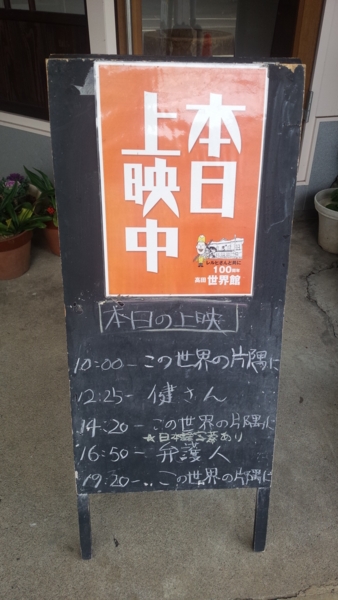 本日
上映中
100周年
高田 世界館
本日の上映
10:00-この世界の片隅に
12:25- 健さん
14:20-この世界の片隅に
★日本語字幕あり
16:50- 弁護人
19:20-..この世界の片隅に